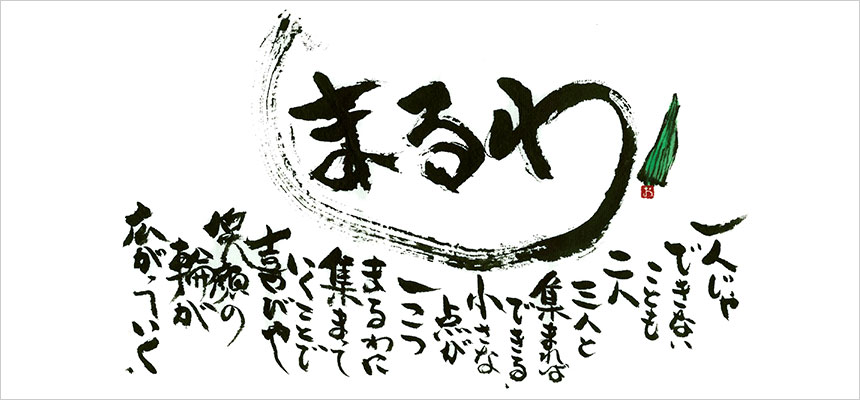 まるわ
お
一人じゃ
できない
ことも
二人
三人と
集まれば
できる、
小さな
点が
まるわに
集まって
いくことで
喜びや
笑顔の
輪が
広がっていく。